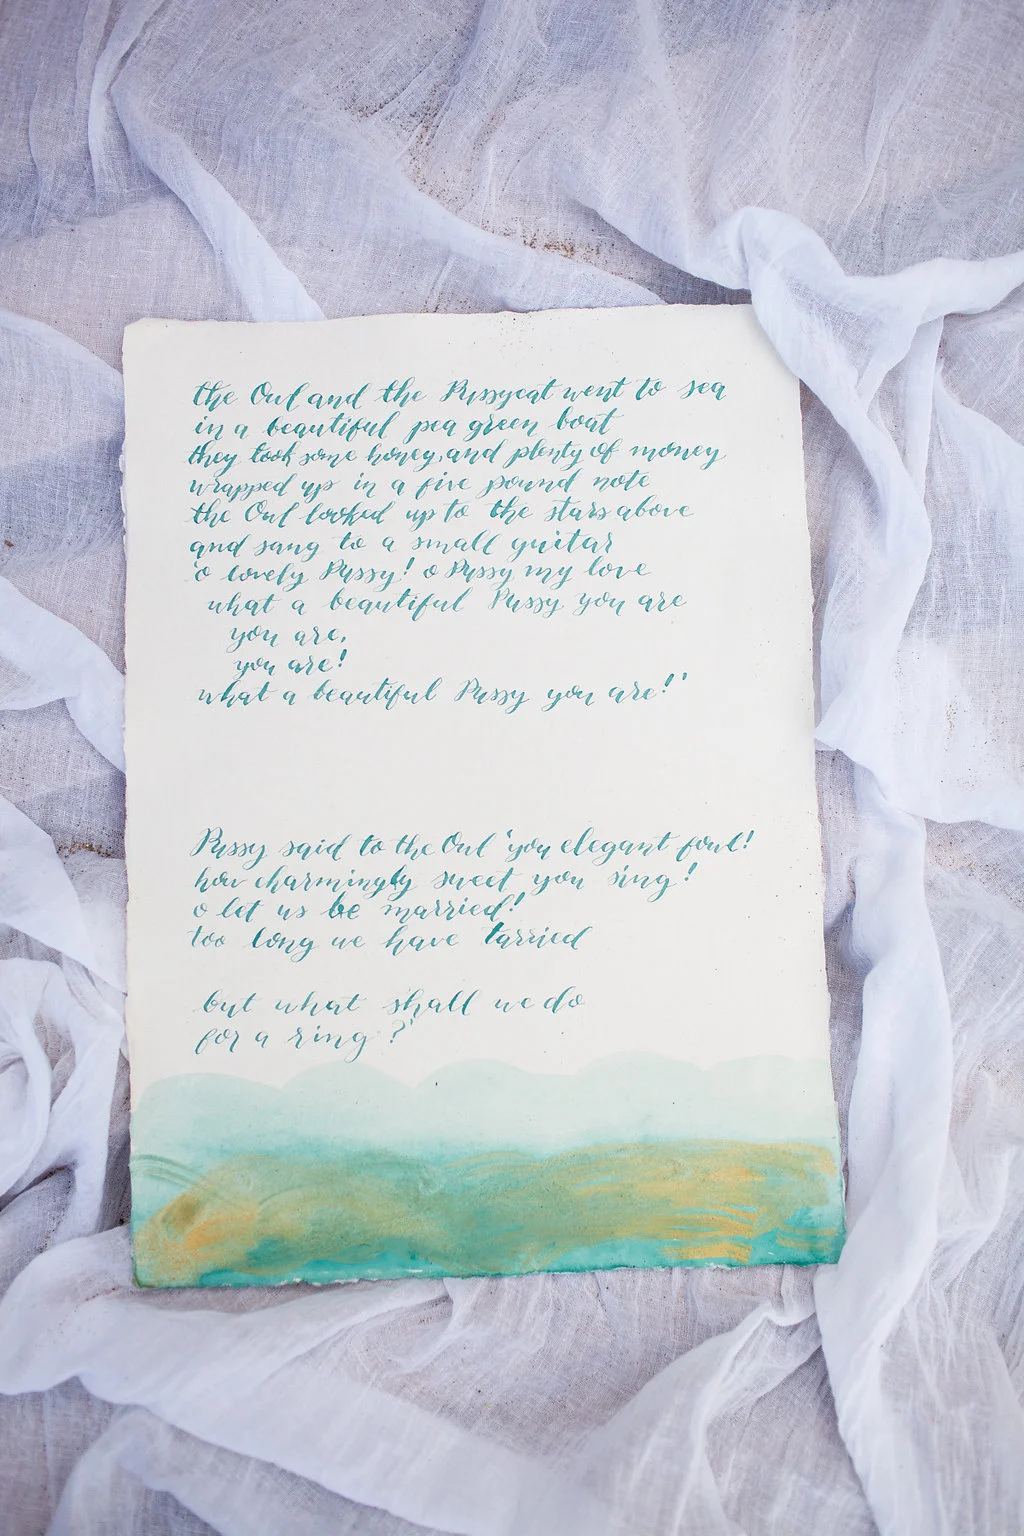 the Owl and the Pussycat went to sea
in a beautiful pea green boat
they took some honey, and plenty of money
wrapped up in a five pound note
the Owl looked up to the stars above
and sang to a small guitar
'o lovely Pussy! o Pussy my love
what a beautiful Pussy you are
you are,
you are!
what a beautiful Pussy you are!'
Pussy said to the Owl 'you elegant fowl!
how charmingly sweet you sing!
o let us be married!
too long we have tarried
but what shall we do
for a ring?'